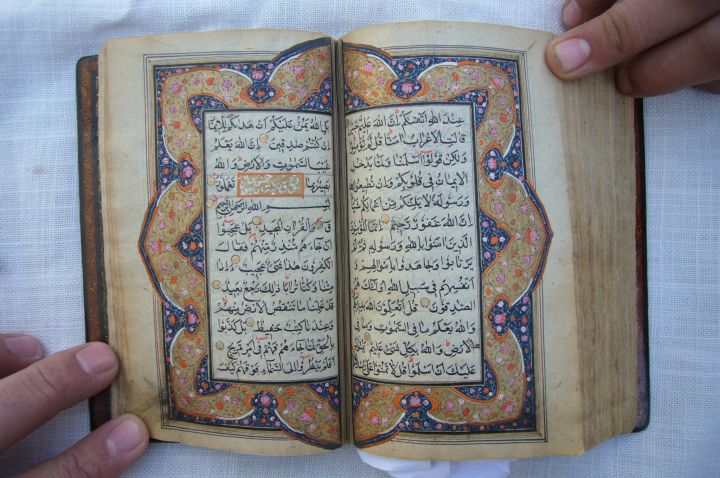 عِنْدَ اللهِ اَتْقٰیکُمْ اِنَّ اللهَ عَلِیمٌ خَبِیرٌ
قَالَتِ الْاَعْرَابُ اٰمَنَّا قُلْ لَمْ تُؤْمِنُوا
وَلٰكِنْ قُولُوا اَسْلَمْنَا وَلَمَّا يَدْخُلِ
الْاِيمَانُ فِى قُلُوبِكُمْ وَاِنْ تُطِيعُوا اللهَ
وَرَسُولَهُ لَا يَلِتْكُمْ مِنْ اَعْمَالِكُمْ شَيْئًا
اِنَّ اللهَ غَفُورٌ رَحِيمٌ اِنَّمَا الْمُؤْمِنُونَ
الَّذِينَ اٰمَنُوا بِاللهِ وَرَسُولِهِ ثُمَّ لَمْ
يَرْتَابُوا وَجَاهَدُوا بِاَمْوَالِهِمْ وَ
اَنْفُسِهِمْ فِى سَبِيلِ اللهِ اُولٰئِكَ هُمُ
الصَّادِقُونَ قُلْ اَتُعَلِّمُونَ اللهَ بِدِينِكُمْ
وَاللهُ يَعْلَمُ مَا فِى السَّمٰوٰتِ وَمَا فِى
الْاَرْضِ وَاللهُ بِكُلِّ شَىْءٍ عَلِيمٌ يَمُنُّونَ
عَلَيْكَ اَنْ اَسْلَمُوا قُلْ لَا تَمُنُّوا عَلَىَّ
بَلِ اللهُ يَمُنُّ عَلَيْكُمْ اَنْ هَدٰيكُمْ لِلْاِيمَانِ
اِنْ كُنْتُمْ صَادِقِينَ اِنَّ اللهَ يَعْلَمُ
غَيْبَ السَّمٰوٰتِ وَالْاَرْضِ وَاللهُ
بَصِيرٌ بِمَا تَعْمَلُونَ
بِسْمِ اللهِ الرَّحْمٰنِ الرَّحِيمِ
قٓ وَالْقُرْاٰنِ الْمَجِيدِ بَلْ عَجِبُوا
اَنْ جَاءَهُمْ مُنْذِرٌ مِنْهُمْ فَقَالَ
الْكَافِرُونَ هٰذَا شَىْءٌ عَجِيبٌ ءَاِذَا
مِتْنَا وَكُنَّا تُرَابًا ذٰلِكَ رَجْعٌ بَعِيدٌ
قَدْ عَلِمْنَا مَا تَنْقُصُ الْاَرْضُ مِنْهُمْ
وَعِنْدَنَا كِتَابٌ حَفِيظٌ بَلْ كَذَّبُوا
بِالْحَقِّ لَمَّا جَاءَهُمْ فَهُمْ فِى اَمْرٍ مَرِيجٍ
اَفَلَمْ يَنْظُرُوا اِلَى السَّمَاءِ فَوْقَهُمْ كَيْفَ